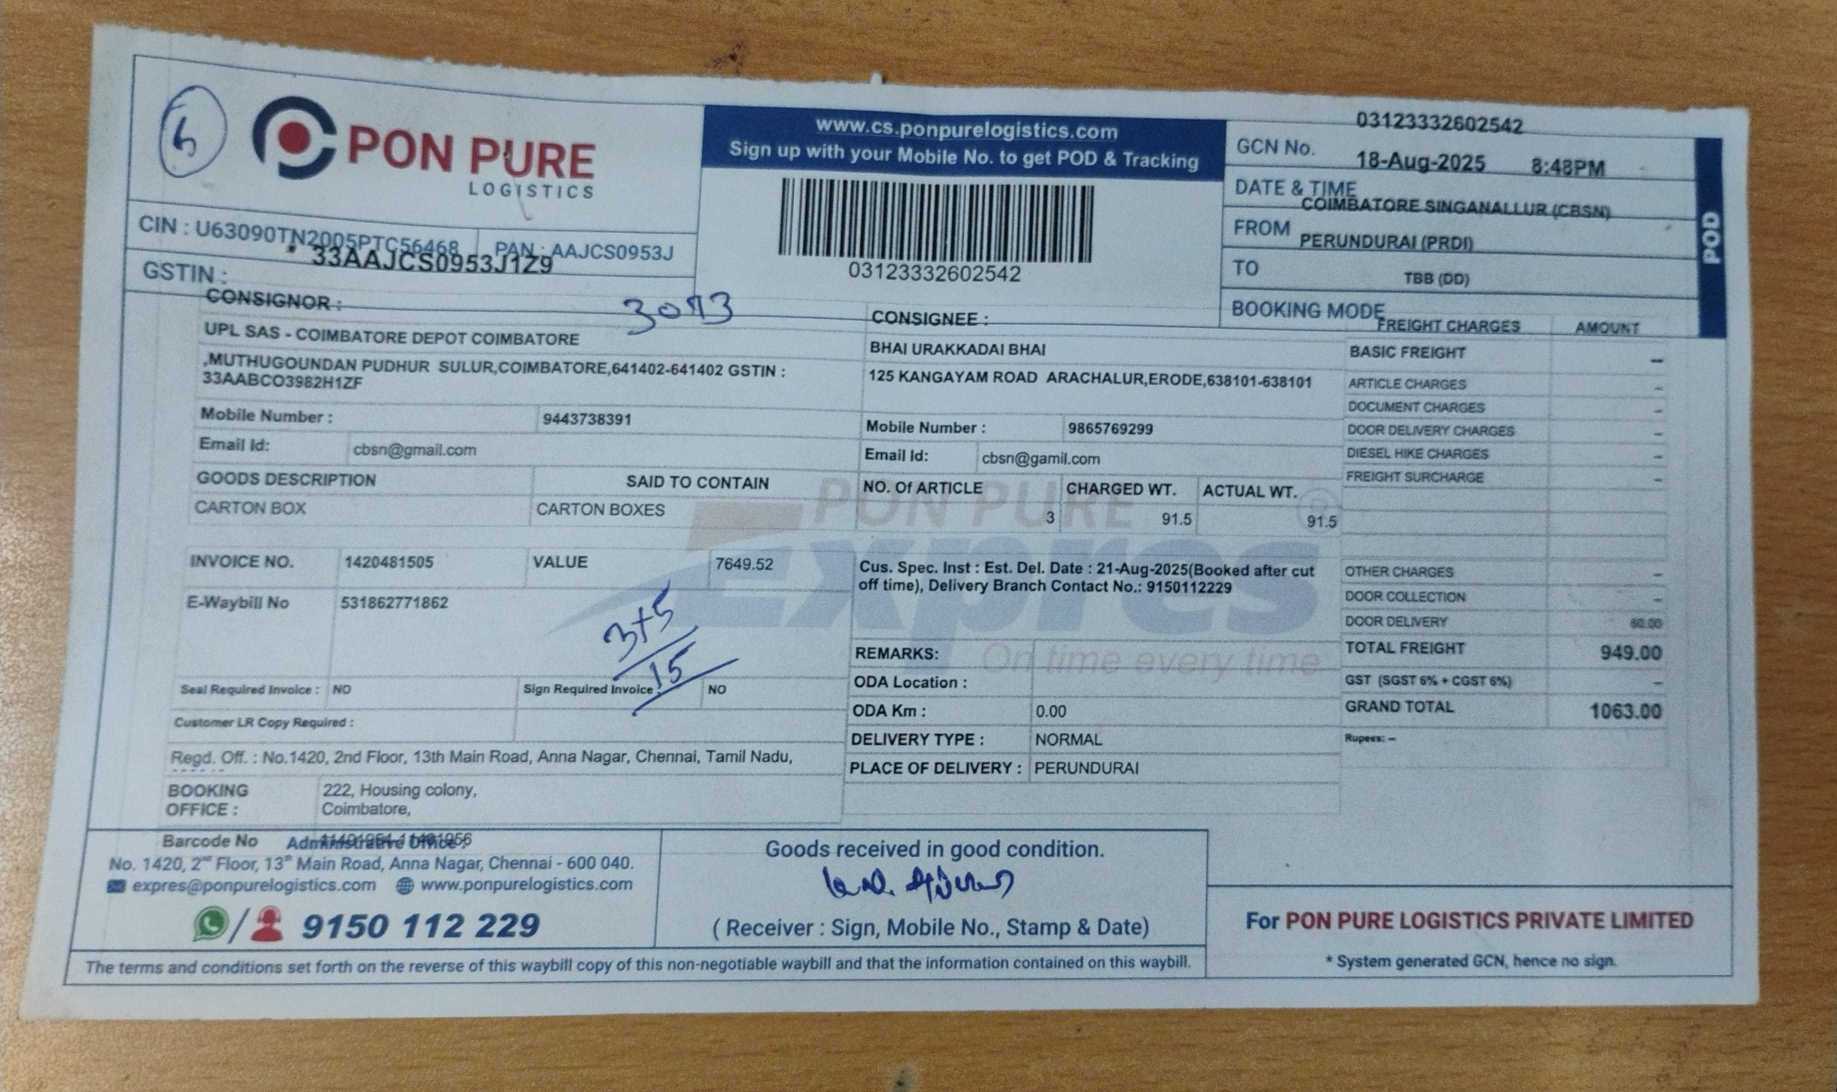 5
PON PURE
LOGISTICS
CIN : U63090TN2005PTC56468 PAN : AAJCS0953J
GSTIN : 33AAJCS0953J1Z9
www.cs.ponpurelogistics.com
Sign up with your Mobile No. to get POD & Tracking
03123332602542
GCN No. 03123332602542
DATE & TIME 18-Aug-2025 8:48PM
FROM COIMBATORE SINGANALLUR (CBSN)
TO PERUNDURAI (PRDI)
BOOKING MODE TBB (DD)
POD
CONSIGNOR :
3073
UPL SAS - COIMBATORE DEPOT COIMBATORE
,MUTHUGOUNDAN PUDHUR SULUR,COIMBATORE,641402-641402 GSTIN :
33AABCO3982H1ZF
Mobile Number : 9443738391
Email Id: cbsn@gmail.com
CONSIGNEE :
BHAI URAKKADAI BHAI
125 KANGAYAM ROAD ARACHALUR,ERODE,638101-638101
Mobile Number : 9865769299
Email Id: cbsn@gamil.com
GOODS DESCRIPTION SAID TO CONTAIN NO. Of ARTICLE CHARGED WT. ACTUAL WT.
CARTON BOX CARTON BOXES 3 91.5 91.5
PON PURE
Expres
On time every time
INVOICE NO. 1420481505 VALUE 7649.52
E-Waybill No 531862771862
3+5
15
Seal Required Invoice : NO Sign Required Invoice : NO
Customer LR Copy Required :
Regd. Off. : No.1420, 2nd Floor, 13th Main Road, Anna Nagar, Chennai, Tamil Nadu,
BOOKING OFFICE : 222, Housing colony,
Coimbatore,
Cus. Spec. Inst : Est. Del. Date : 21-Aug-2025(Booked after cut
off time), Delivery Branch Contact No.: 9150112229
REMARKS:
ODA Location :
ODA Km : 0.00
DELIVERY TYPE : NORMAL
PLACE OF DELIVERY : PERUNDURAI
FREIGHT CHARGES AMOUNT
BASIC FREIGHT –
ARTICLE CHARGES –
DOCUMENT CHARGES –
DOOR DELIVERY CHARGES –
DIESEL HIKE CHARGES –
FREIGHT SURCHARGE –
OTHER CHARGES –
DOOR COLLECTION –
DOOR DELIVERY 60.00
TOTAL FREIGHT 949.00
GST (SGST 6% + CGST 6%) –
GRAND TOTAL 1063.00
Rupees: –
Barcode No
Administrative Office :
No. 1420, 2nd Floor, 13th Main Road, Anna Nagar, Chennai - 600 040.
expres@ponpurelogistics.com www.ponpurelogistics.com
/ 9150 112 229
Goods received in good condition.
( Receiver : Sign, Mobile No., Stamp & Date)
For PON PURE LOGISTICS PRIVATE LIMITED
* System generated GCN, hence no sign.
The terms and conditions set forth on the reverse of this waybill copy of this non-negotiable waybill and that the information contained on this waybill.